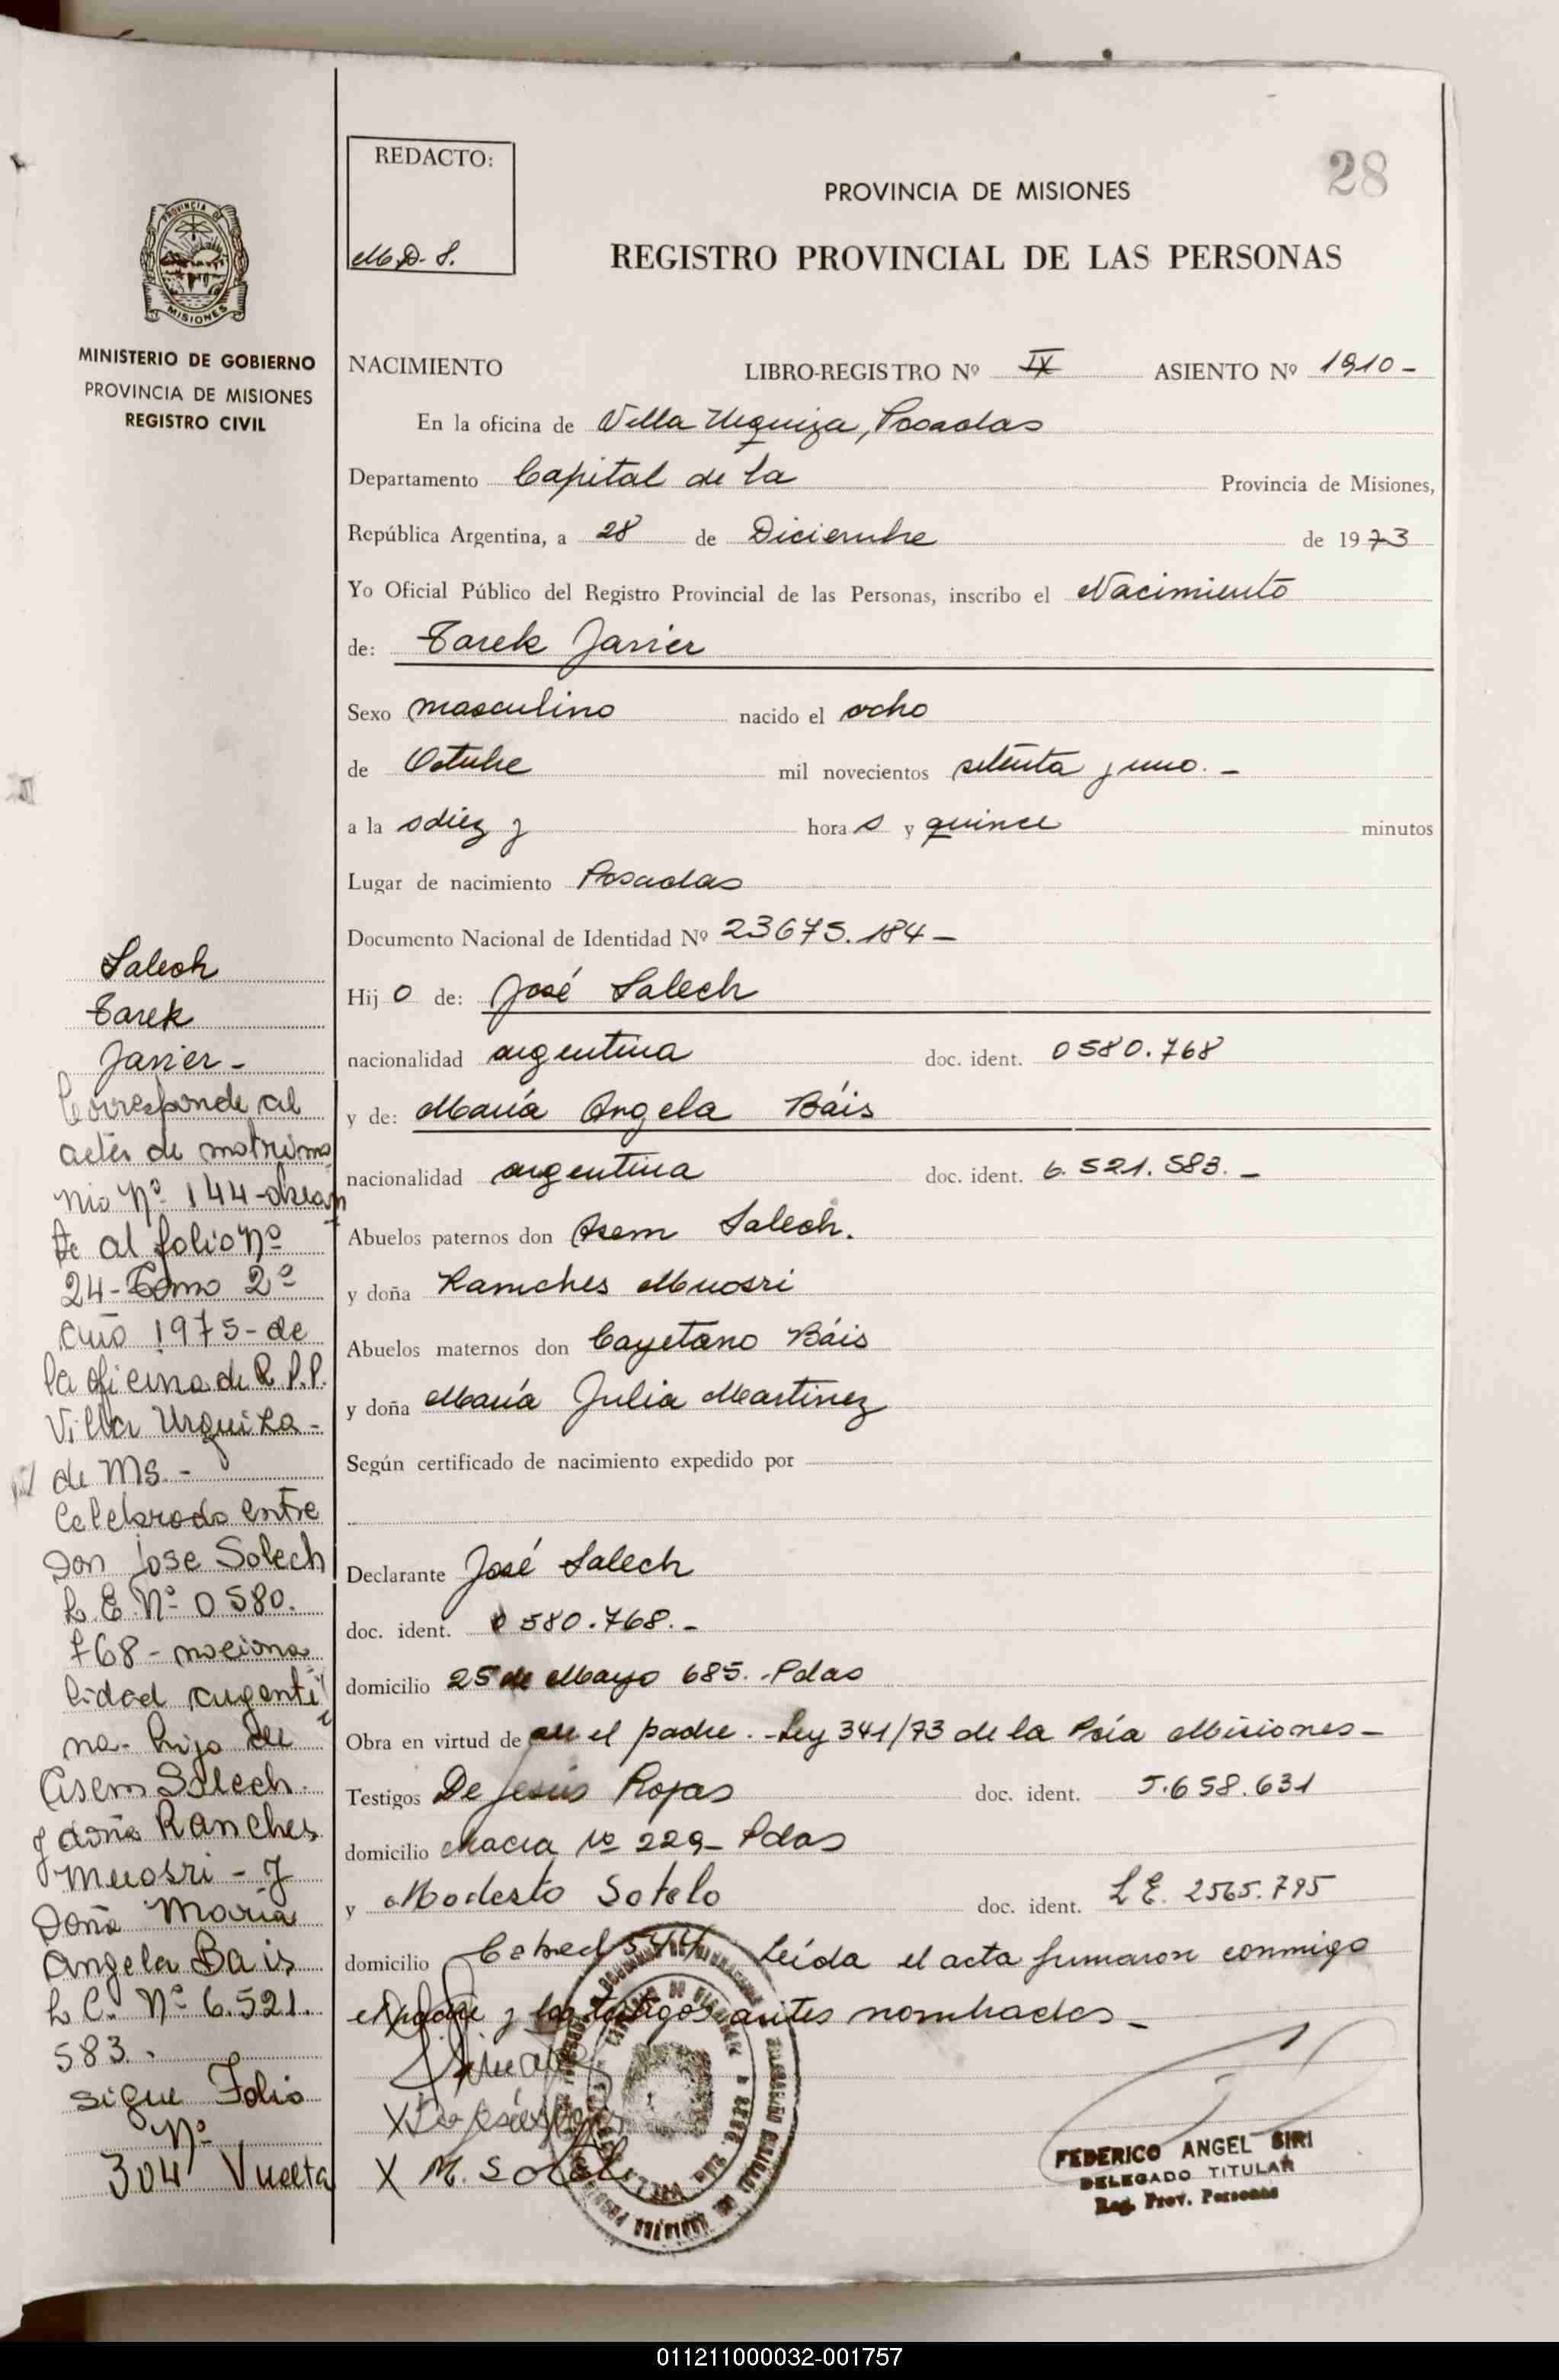 28
REDACTO:
M.D.S.
PROVINCIA DE MISIONES
REGISTRO PROVINCIAL DE LAS PERSONAS
PROVINCIA DE
MISIONES
MINISTERIO DE GOBIERNO
PROVINCIA DE MISIONES
REGISTRO CIVIL
NACIMIENTO LIBRO-REGISTRO Nº IX ASIENTO Nº 1910-
En la oficina de Villa Urquiza, Posadas
Departamento Capital de la Provincia de Misiones,
República Argentina, a 28 de Diciembre de 1973
Yo Oficial Público del Registro Provincial de las Personas, inscribo el Nacimiento
de: Tarek Javier
Sexo masculino nacido el ocho
de Octubre mil novecientos setenta y uno.-
a la s diez y hora s y quince minutos
Lugar de nacimiento Posadas
Documento Nacional de Identidad Nº 23675.184-
Hij o de: José Salech
nacionalidad argentina doc. ident. 0580.768
y de: María Angela Báis
nacionalidad argentina doc. ident. 6.521.583.-
Abuelos paternos don Asem Salech.
y doña Ranches Muosri
Abuelos maternos don Cayetano Báis
y doña María Julia Martinez
Según certificado de nacimiento expedido por
Declarante José Salech
doc. ident. 0580.768.-
domicilio 25 de Mayo 685.-Pdas
Obra en virtud de ser el padre.-Ley 341/73 de la Pcia Misiones-
Testigos De Jesús Rojas doc. ident. 5.658.631
domicilio Nº 229- Pdas
y Modesto Sotelo doc. ident. L.E. 2565.795
domicilio Leída el acta firmaron conmigo
el padre y los testigos antes nombrados-
X De Jesús Rojas
X M. Sotelo
FEDERICO ANGEL SIRI
DELEGADO TITULAR
Reg. Prov. Personas
Salech
Tarek
Javier-
Corresponde al
acta de matrimo
nio Nº 144-obran
te al folio Nº
24-Tomo 2º
año 1975-de
la oficina de R.P.P.
Villa Urquiza-
de Ms.-
Celebrado entre
Don Jose Salech
L.E. Nº 0580.
768-naciona
lidad argenti
na- hijo de
Asem Salech
y doña Ranches
Muosri-y
Doña Maria
Angela Bais
L.C. Nº 6.521.
583.
sigue Folio
Nº
304 Vuelta
011211000032-001757